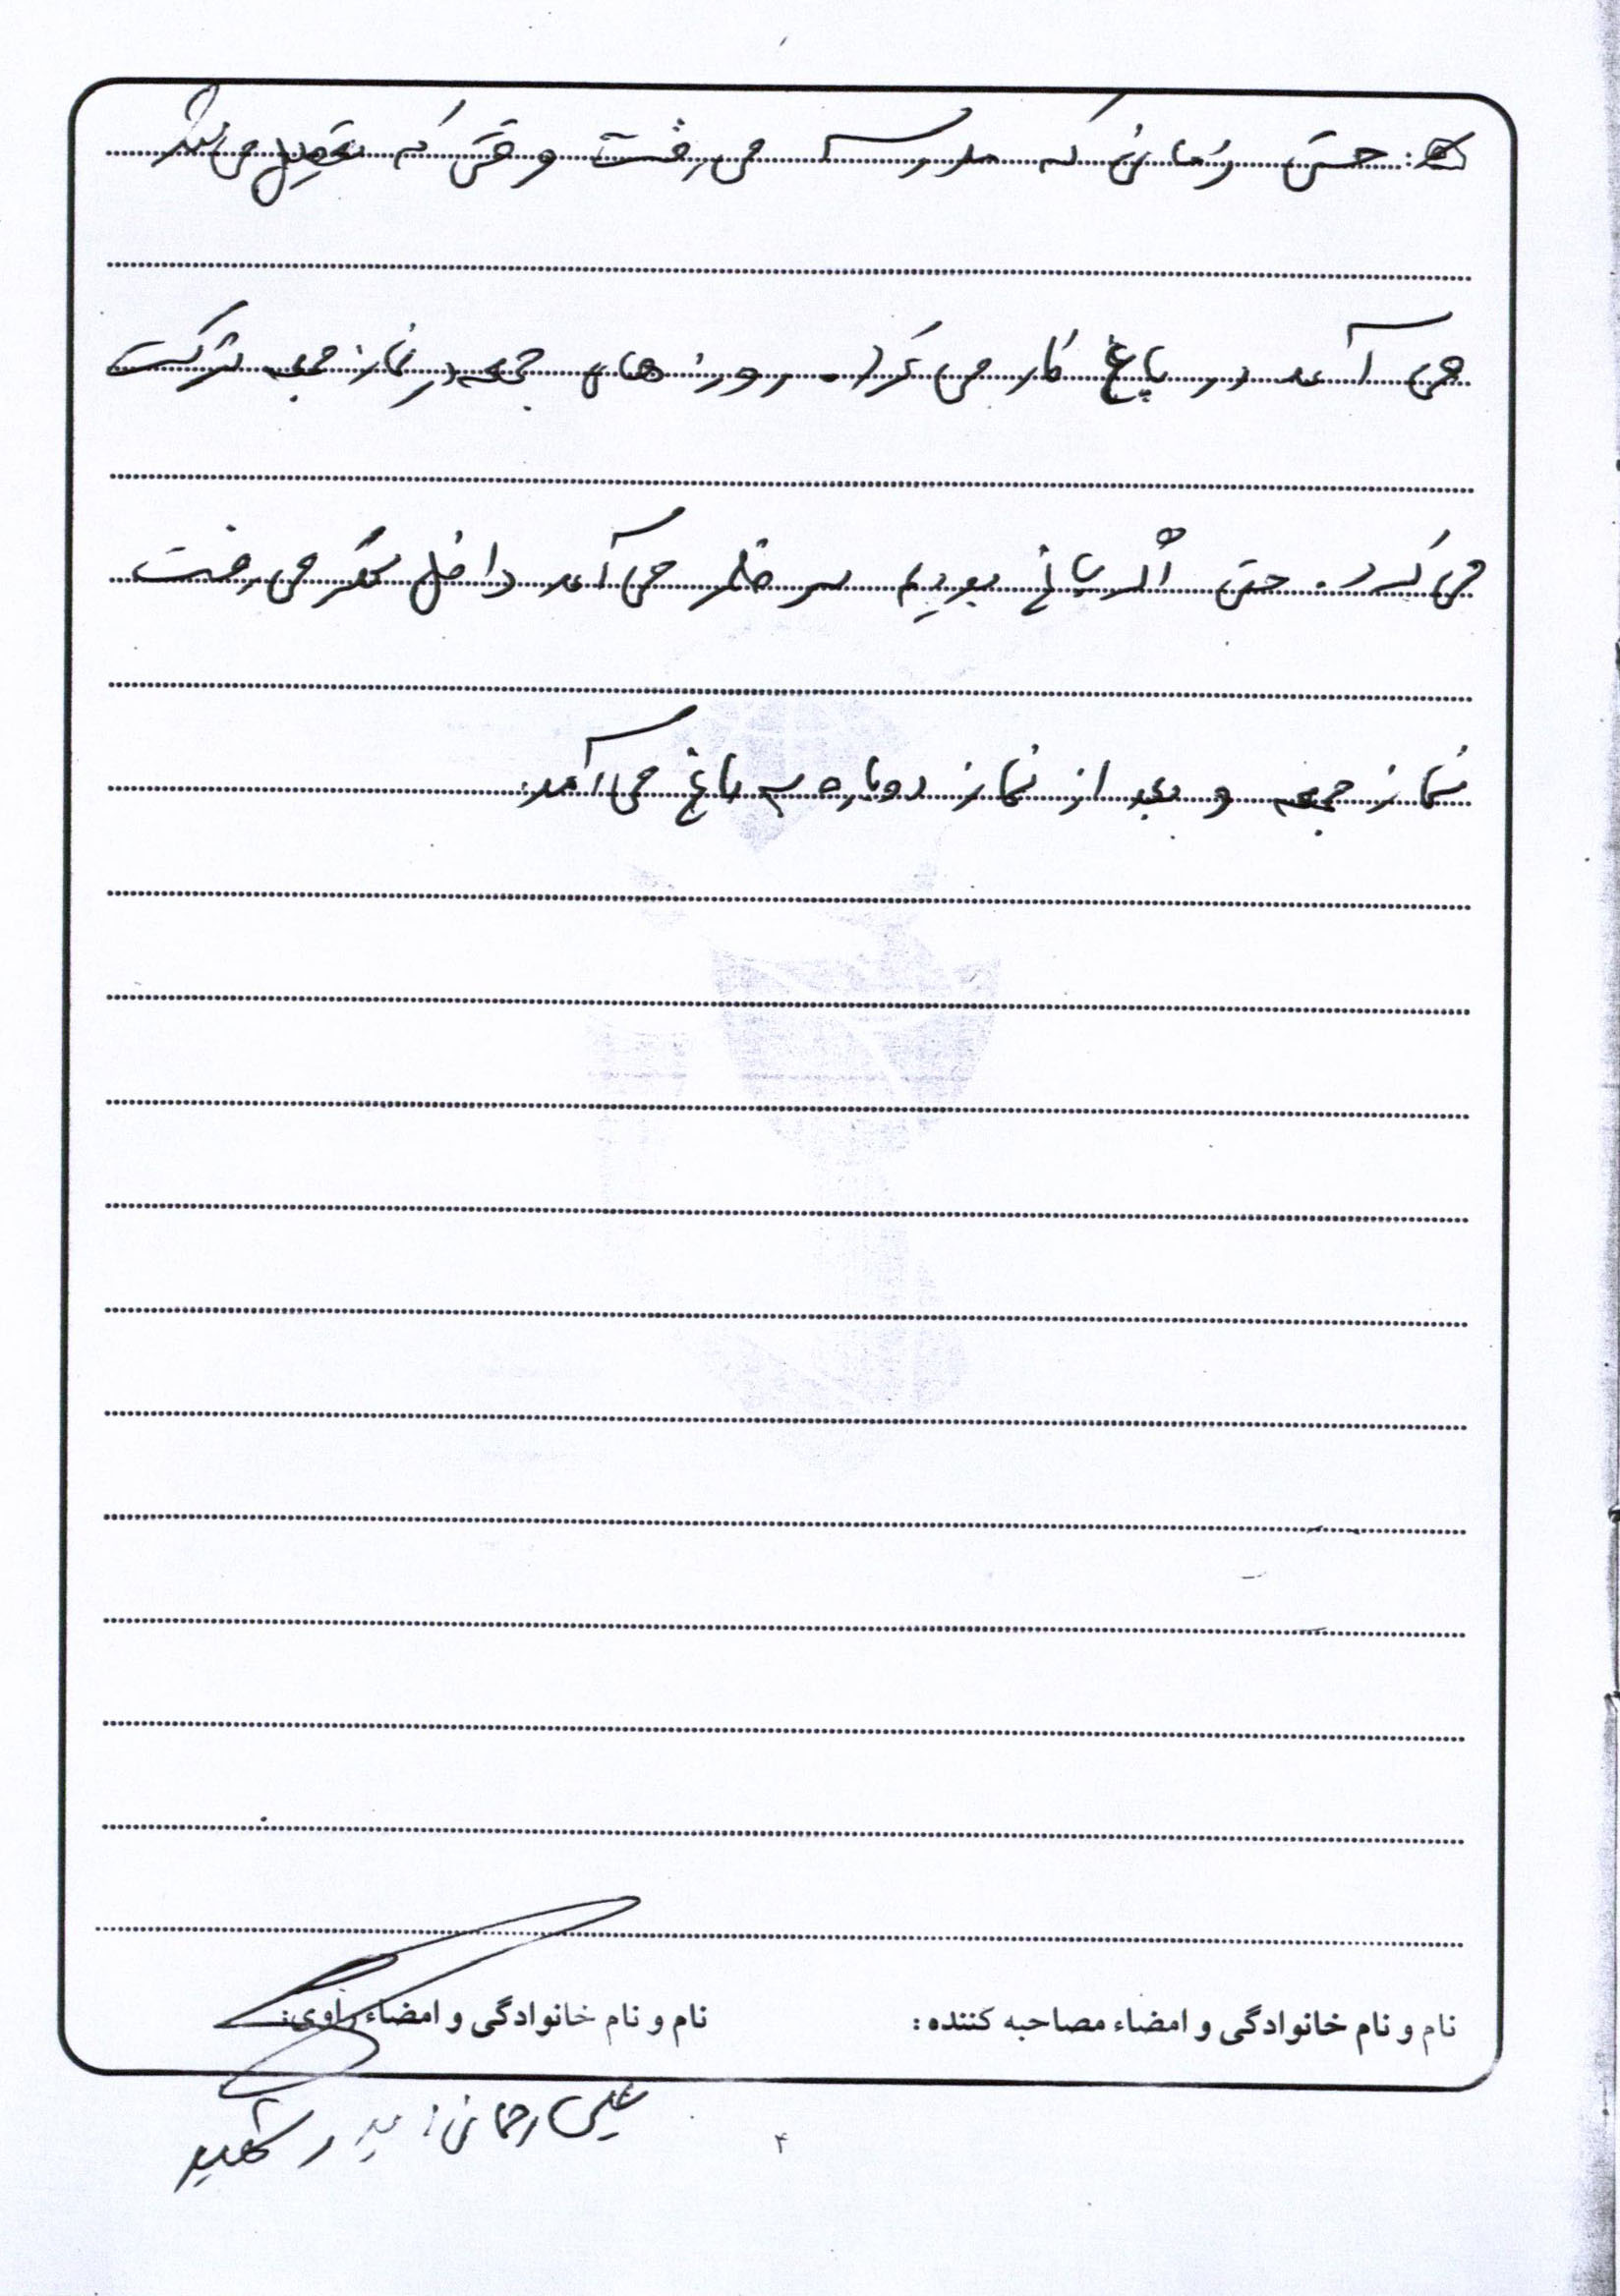 حتی زمانی که مدرسه می رفت وقتی که تعطیل می شد
می آمد در باغ کار می کرد. روزهای جمعه در نماز جمعه شرکت
می کرد. حتی اگر باغ بودیم سر ظهر می آمد داخل شهر می رفت
نماز جمعه و بعد از نماز دوباره به باغ می آمد.
نام و نام خانوادگی و امضاء مصاحبه کننده :
نام و نام خانوادگی و امضاء راوی:
علی رحمانی پدر شهید
۴